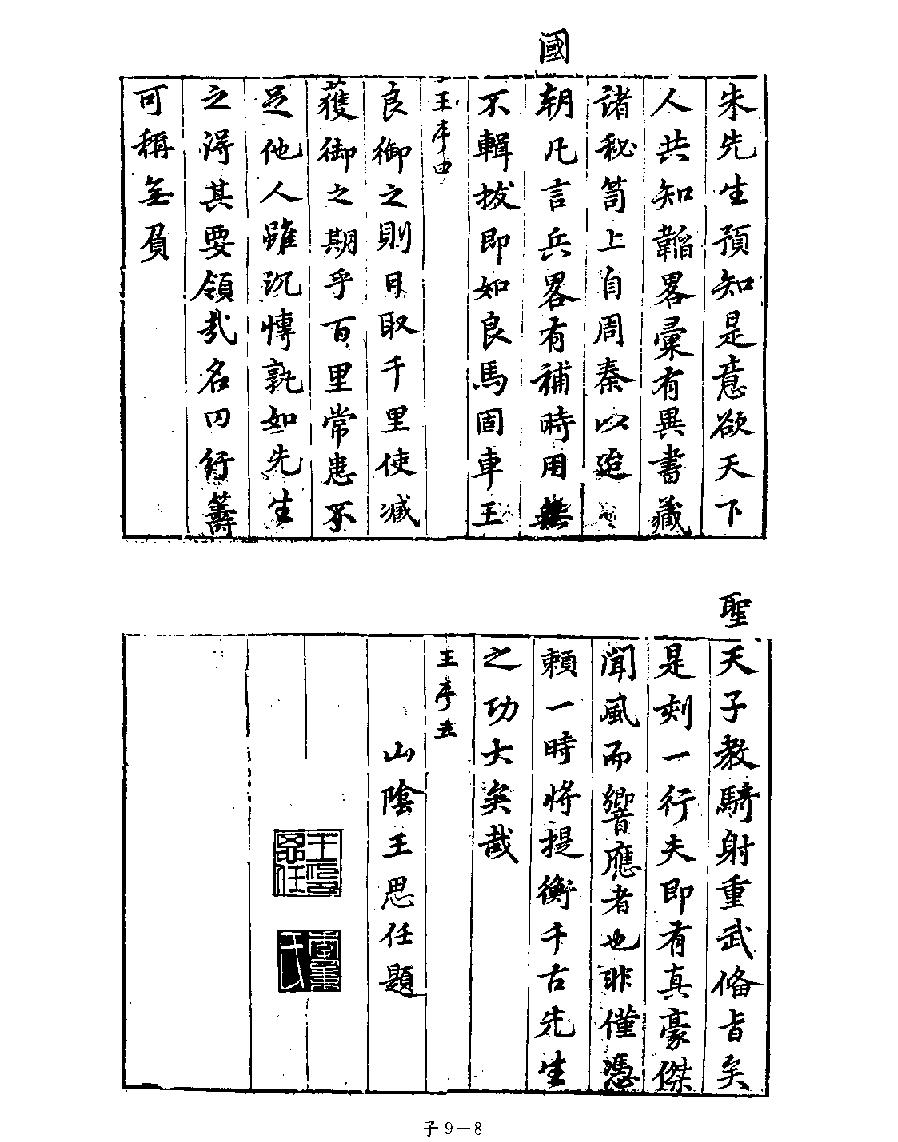 朱先生預知是意欲天下
人共知韜畧彚有異書藏
諸秘笥上自周秦以迨
國朝凡言兵畧有補時用無
不輯拔即如良馬固車王
王序四
良御之則日取千里使臧
獲御之期乎百里常患不
足他人雖沉博孰如先生
之得其要領哉名曰行籌
可稱無負
聖天子教騎射重武俻旨矣
是刻一行夫即有真豪傑
聞風而響應者也非僅憑
頼一時將提衡千古先生
之功大矣哉
王序五
山陰王思任題
子9—8